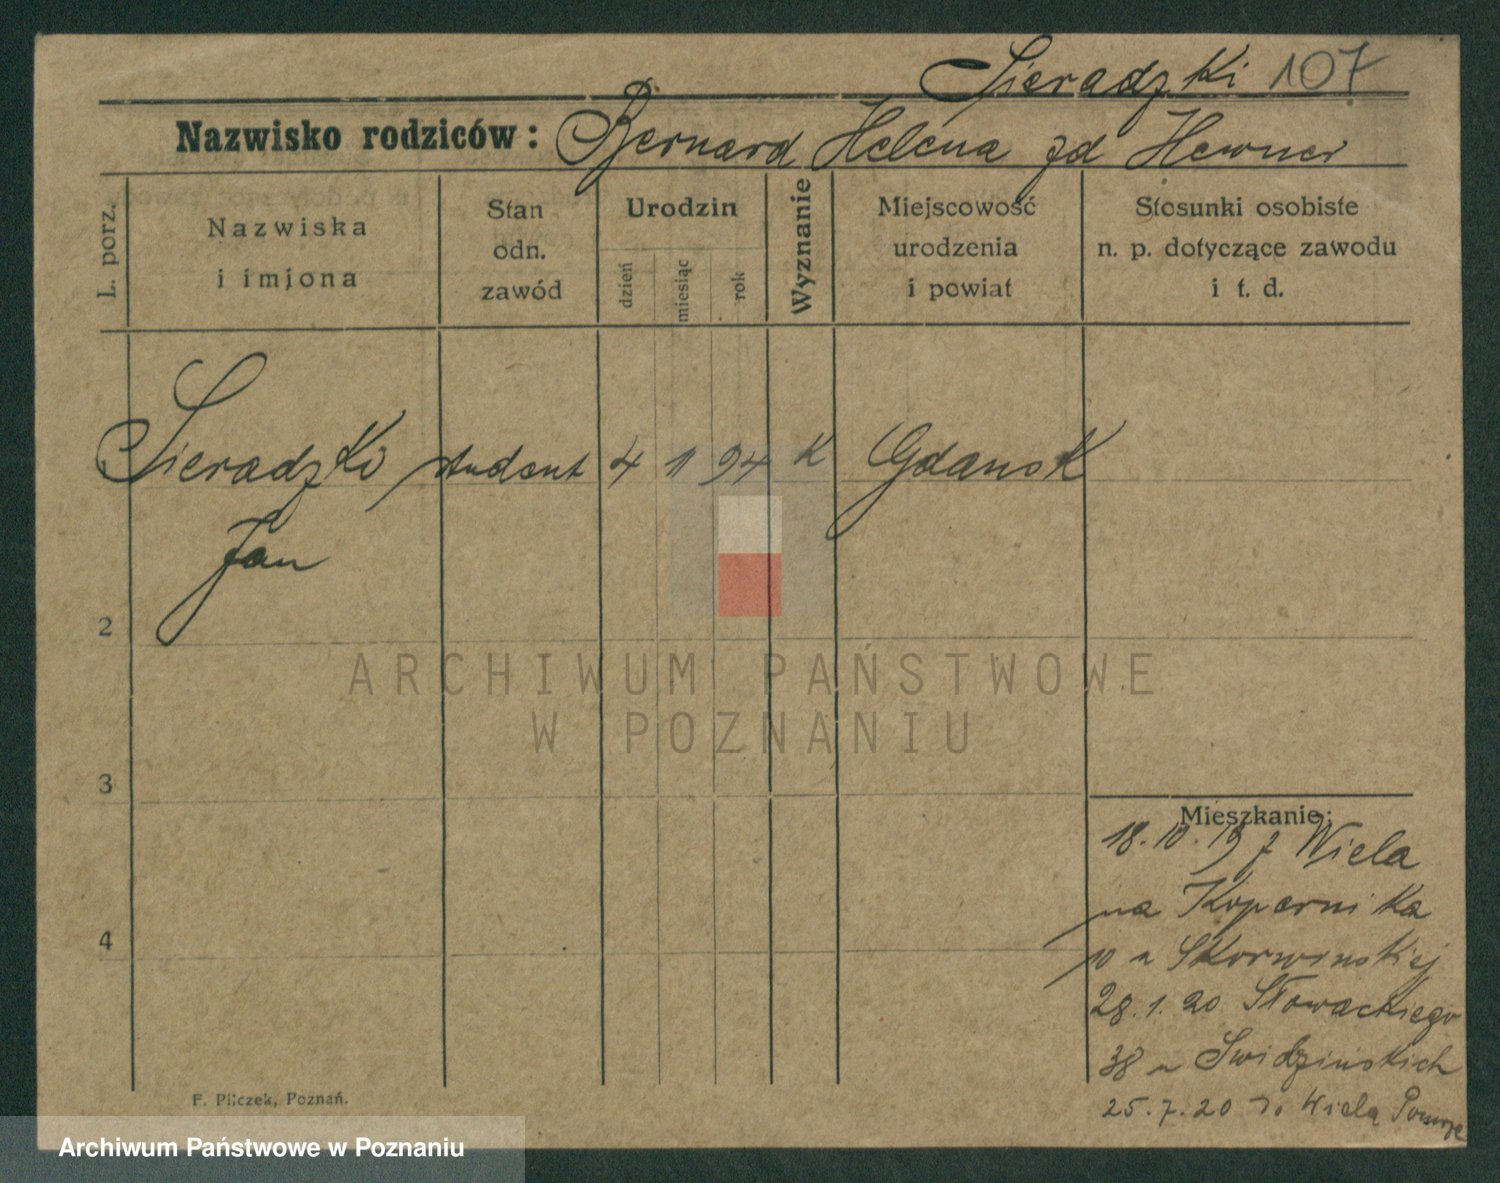 Sieradzki 107
Nazwisko rodziców: Bernard Helena zd Hewner
L. porz.
Nazwiska
i imiona
Stan
odn.
zawód
Urodzin
dzień
miesiąc
rok
Wyznanie
Miejscowość
urodzenia
i powiat
Stosunki osobiste
n. p. dotyczące zawodu
i t. d.
Sieradzki student 4 1 94 K Gdansk
Jan
2
3
4
ARCHIWUM PAŃSTWOWE
W POZNANIU
Mieszkanie:
18.10.19 z Wiela
na Kopernika
10 u Skorwinskiej
28.1.20 Słowackiego
38 u Swidzińskich
25.7.20 do Wiela
F. Pilczek, Poznań.
Archiwum Państwowe w Poznaniu